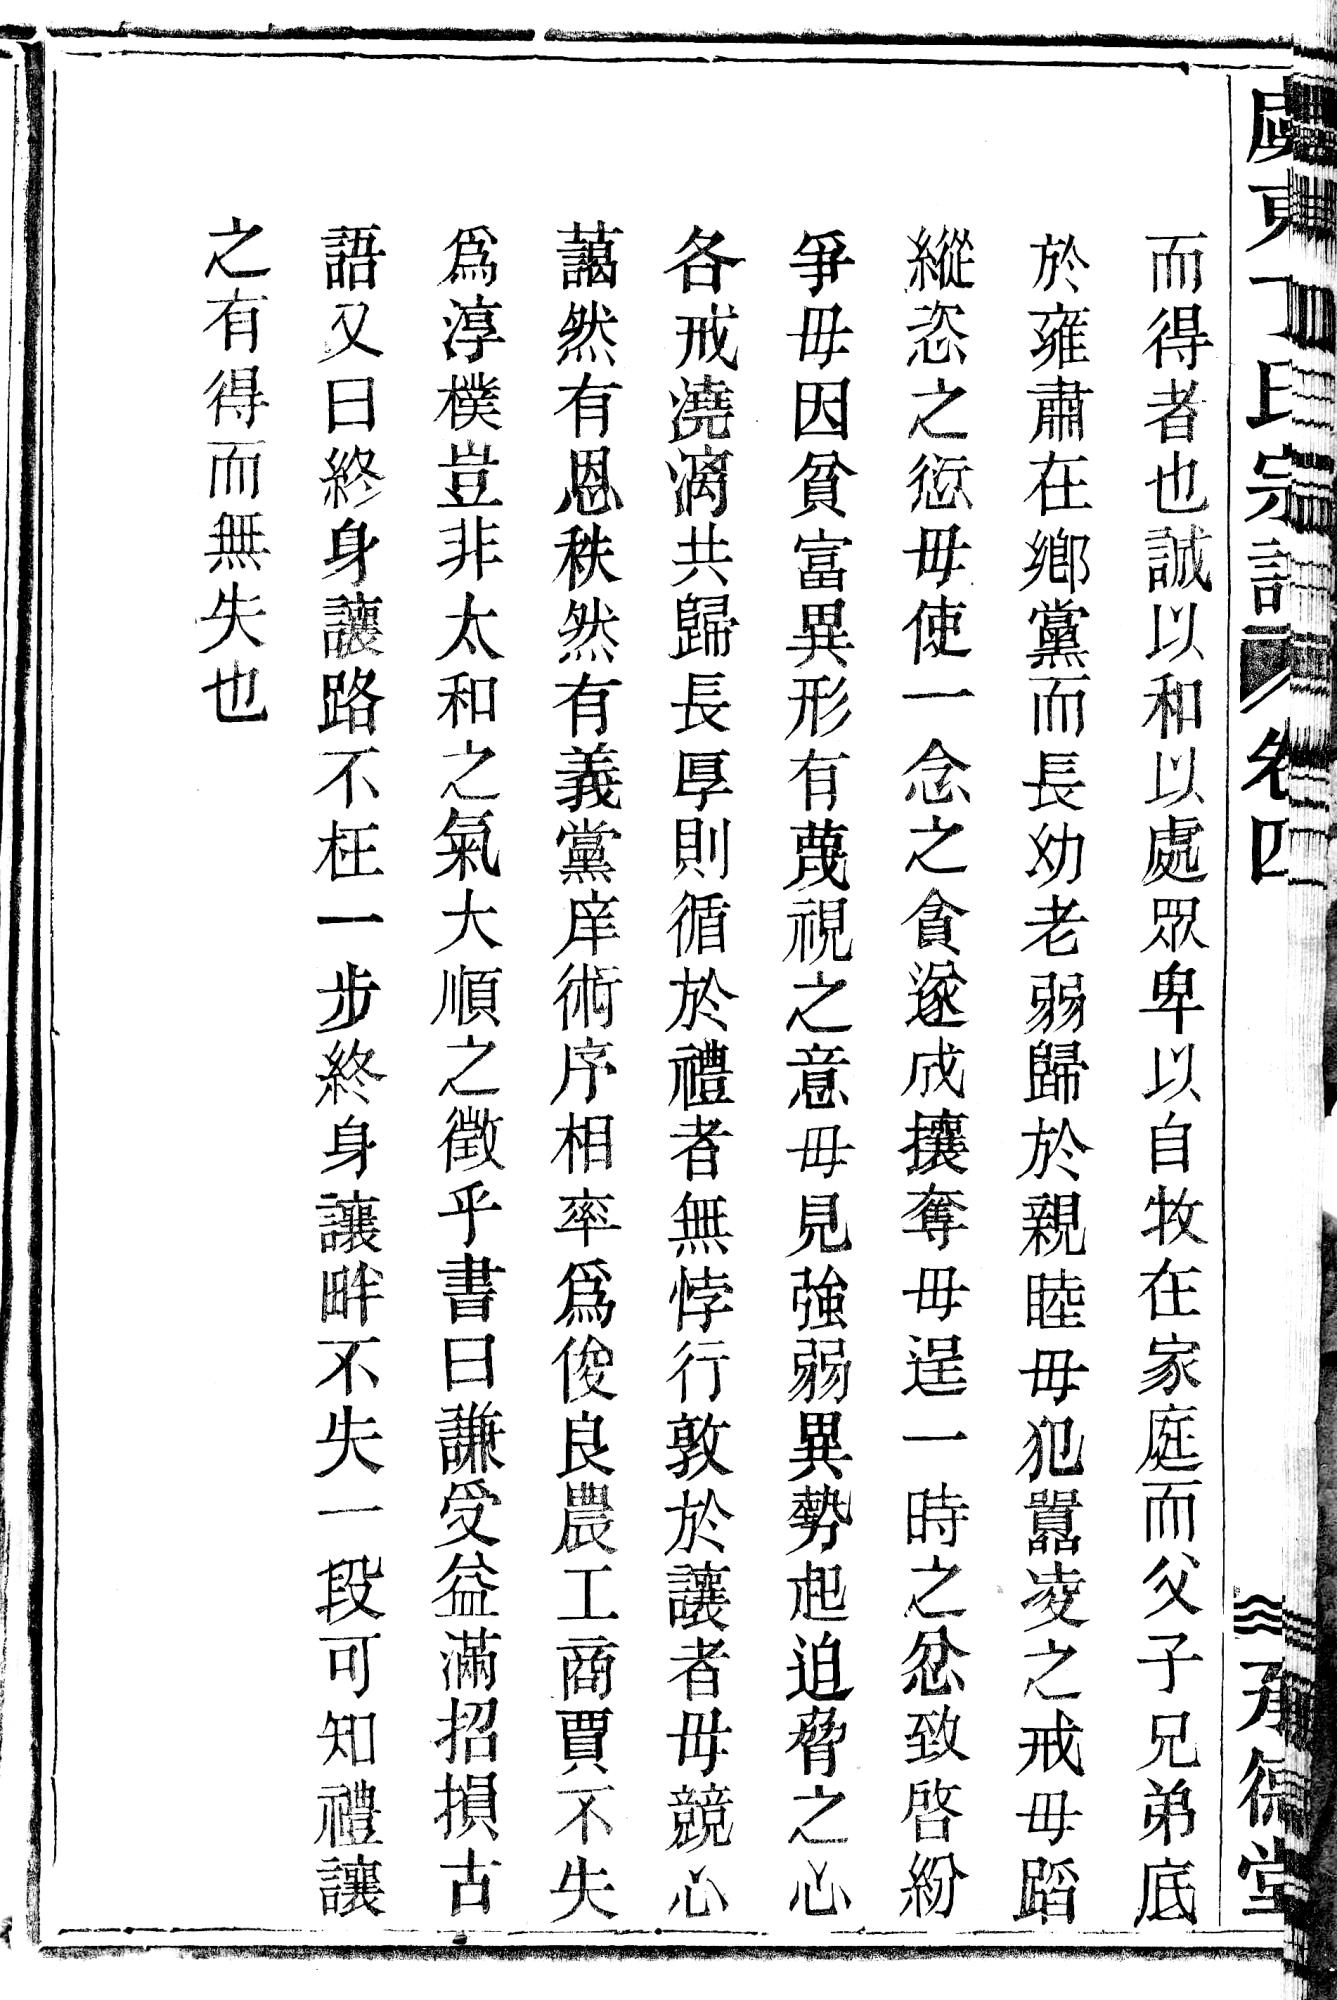 虞東丁氏宗譜 卷四 承德堂
而得者也誠以和以處眾卑以自牧在家庭而父子兄弟底
於雍肅在鄉黨而長幼老弱歸於親睦毋犯囂凌之戒毋蹈
縱恣之愆毋使一念之貪遂成攘奪毋逞一時之忿致啓紛
爭毋因貧富異形有蔑視之意毋見強弱異勢起迫脅之心
各戒澆漓共歸長厚則循於禮者無悖行敦於讓者毋競心
藹然有恩秩然有義黨庠術序相率爲俊良農工商賈不失
爲淳樸豈非太和之氣大順之徵乎書曰謙受益滿招損古
語又曰終身讓路不枉一步終身讓畔不失一段可知禮讓
之有得而無失也